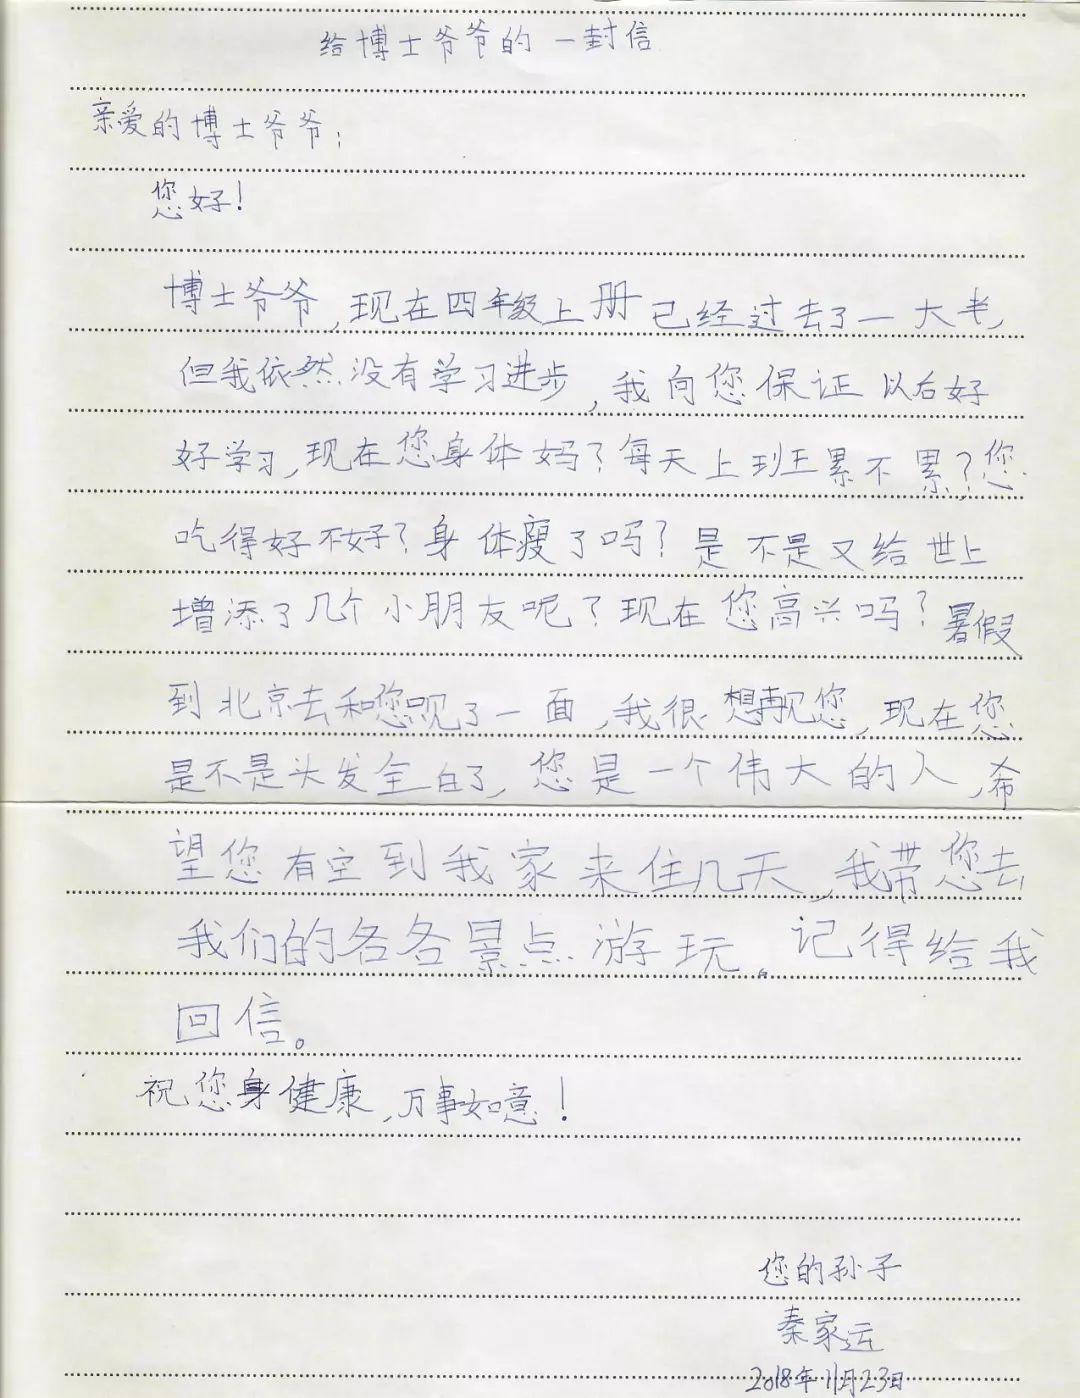 给博士爷爷的一封信
亲爱的博士爷爷：
您好！
博士爷爷，现在四年级上册已经过去了一大半，
但我依然没有学习进步，我向您保证以后好
好学习，现在您身体妈？每天上班累不累？您
吃得好不好？身体瘦了吗？是不是又给世上
增添了几个小朋友呢？现在您高兴吗？暑假
到北京去和您见了一面，我很想再见您，现在您
是不是头发全白了，您是一个伟大的人，希
望您有空到我家来住几天，我带您去
我们的各各景点游玩。记得给我
回信。
祝您身健康，万事如意！
您的孙子
秦家运
2018年11月23日